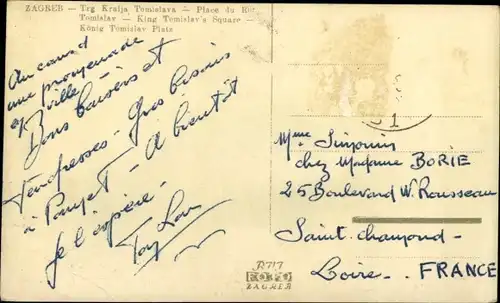 ZAGREB – Trg Kralja Tomislava – Place du Roi
Tomislav – King Tomislav's Square –
König Tomislav Platz
Au cours d
une promenade
en ville –
Bons baisers et
Tendresses – Gros bisous
à Poupet – A bientôt
je l'espère –
1
Mme
chez Madame BORIE
25 Boulevard W. Rousseau
Saint. chamond –
Loire – FRANCE
ZAGREB